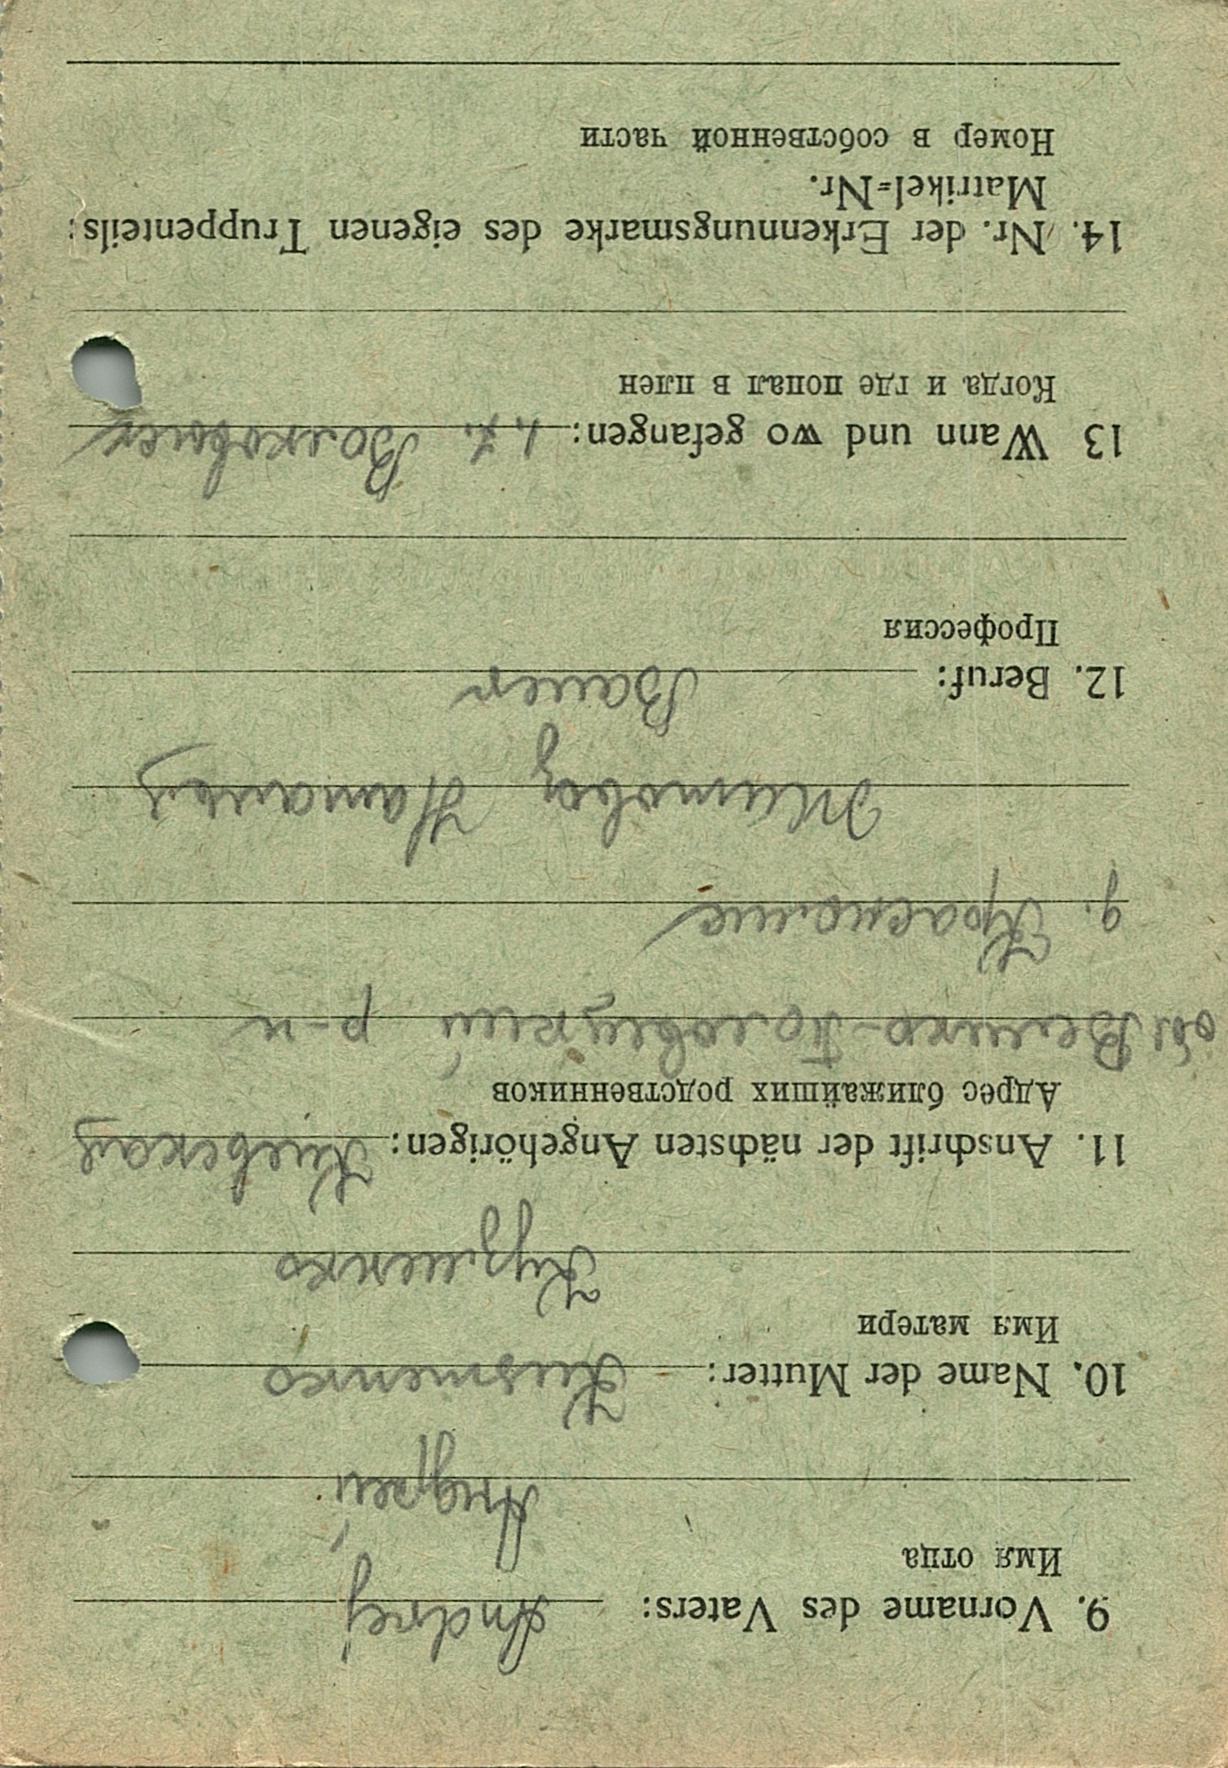 9. Vorname des Vaters: Andrej
Имя отца
Андрей
10. Name der Mutter: Kusmenko
Имя матери
Кузменко
11. Anschrift der nächsten Angehörigen: Киевская
Адрес ближайших родственников
обл Велико-Половецкий р-н
д. Краснолие
Титовой Наталье
12. Beruf: Bauer
Профессия
13 Wann und wo gefangen: 1. X.
Когда и где попал в плен
14. Nr. der Erkennungsmarke des eigenen Truppenteils:
Matrikel-Nr.
Номер в собственной части